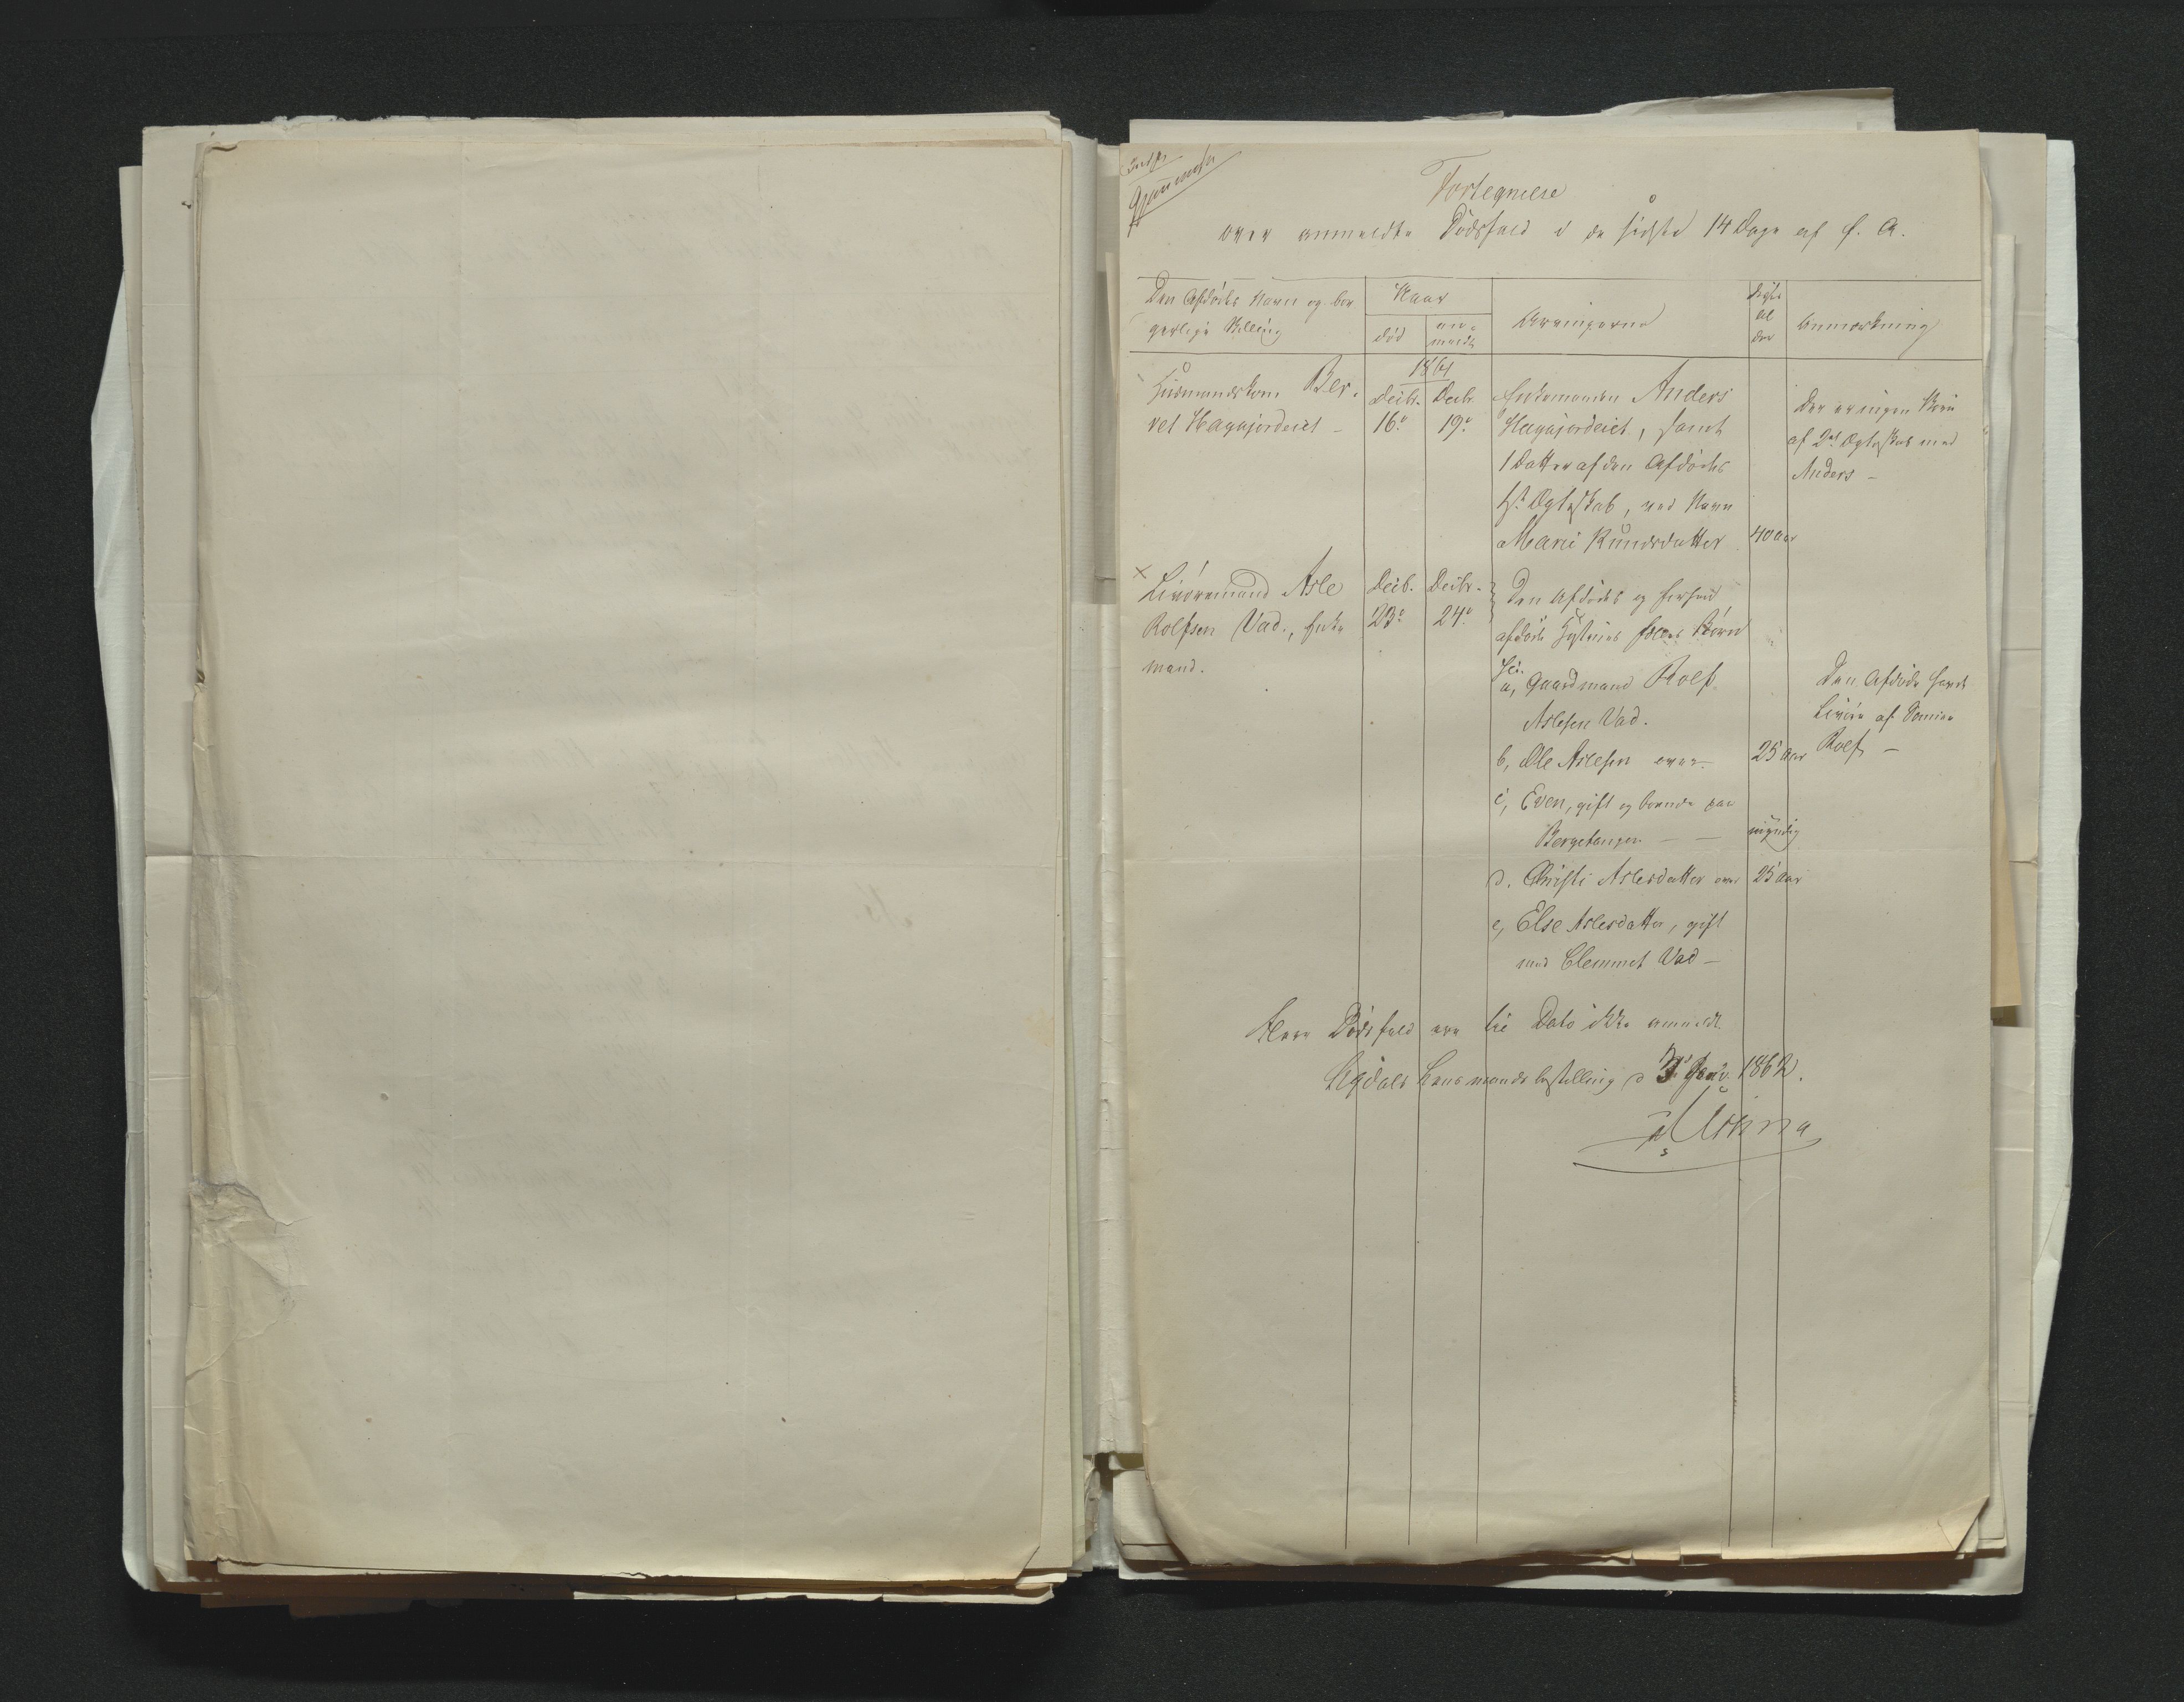 Fortegnelse
over anmeldte Dödsfald i de sidste 14 Dage af f. A.
Den Afdödes Navn og bor
gerlige Stilling
Naar
död
an-
meldt
Arvingerne
Al
der
Anmærkning
1861
Huusmandskone Ber-
ret Hagajordeiet -
Decbr. 16de
Decbr. 19de
Enkemanden Anders
Hagajordeiet, samt
1 Datter af den Afdödes
1ste Ægteskab, ved Navn
Mari Knudsdatter
40 Aar
Der er ingen Börn
af 2det Ægteskab med
Anders -
× Livöremand Asle
Rolfsen Vad, Enke
mand.
Decb. 23de
Decbr. 24de
Den Afdödes og forhen
afdöde Hustrues fælles Börn
a, Gaardmand Rolf
Aslesen Vad.
b, Ole Aslesen over
25 Aar
c, Even, gift og boende paa
Bergetangen - -
myndig
d. Christi Aslesdatter over
25 Aar
e, Else Aslesdatter, gift
med Clemmet Vad -
Den Afdöde havde
Livöre af Sönnen
Rolf -
Flere Dödsfald ere til Dato ikke anmeldt.
Sigdals Lensmandsbestilling d 3de Janr. 1862.